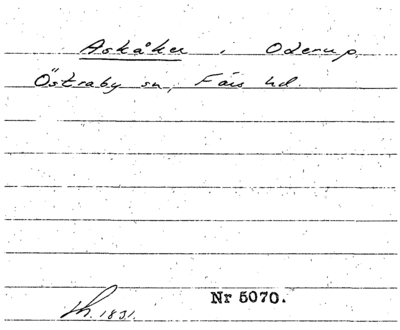 Askåker, Oderup,
Östraby sn, Färs hd.
Nr 5070.
1831.